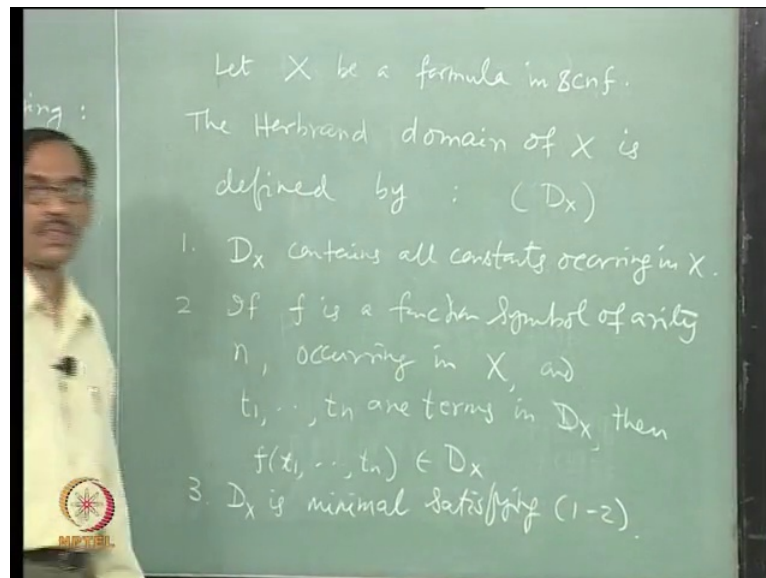 ing :
Let X be a formula in scnf.
The Herbrand domain of X is
defined by : (Dx)
1. Dx contains all constants occurring in X.
2 If f is a function symbol of arity
n, occurring in X, and
t1, .., tn are terms in Dx, then
f(t1, .., tn) ∈ Dx
3. Dx is minimal satisfying (1-2).
NPTEL